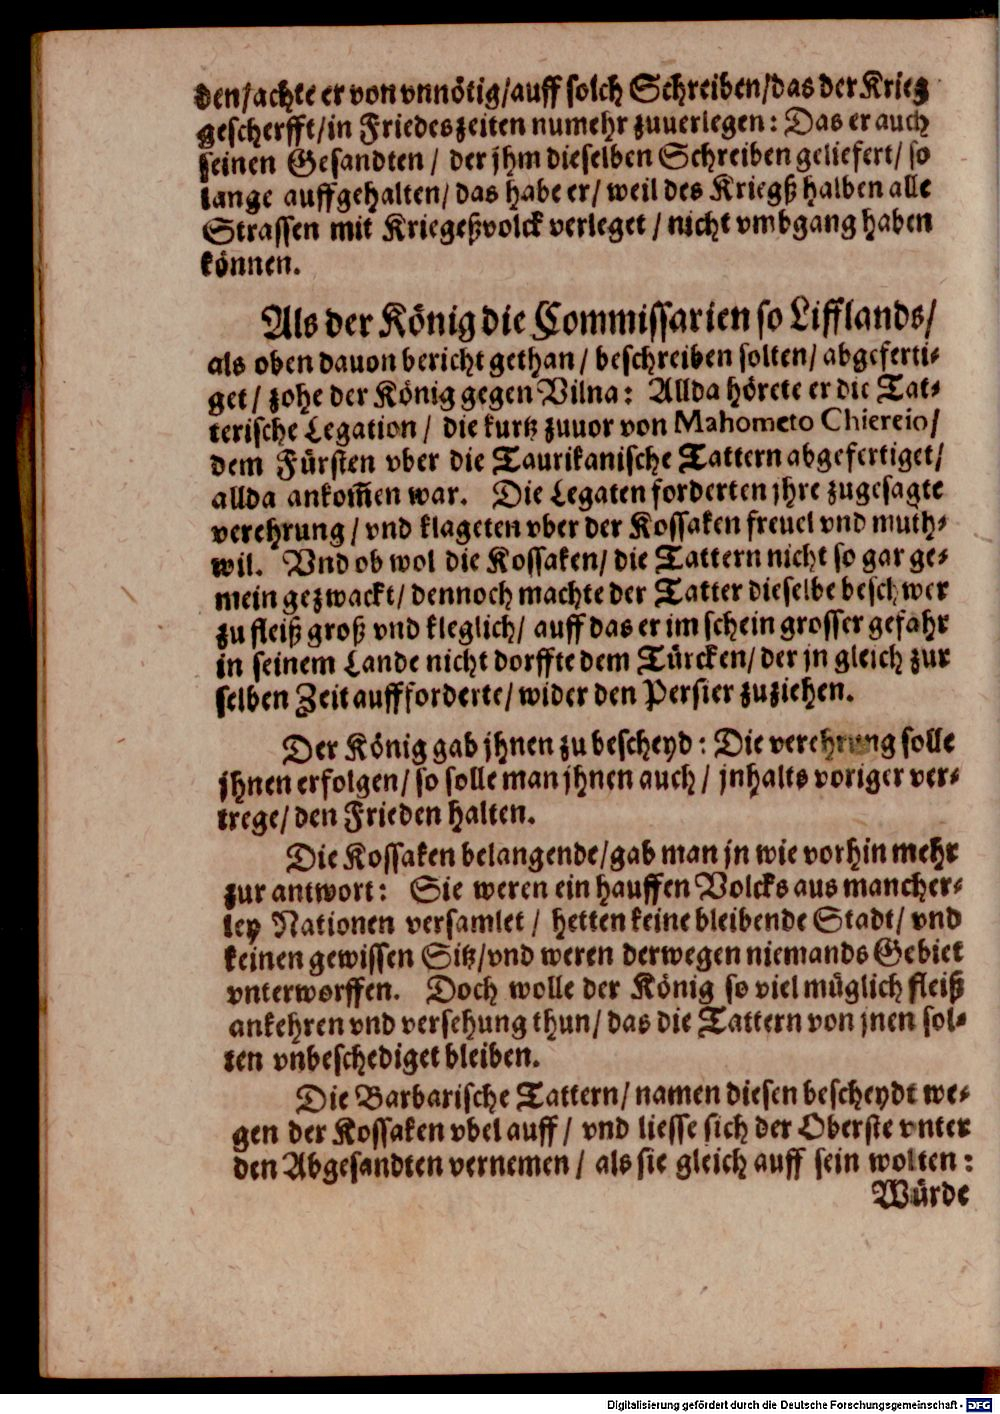 den/achte er von vnnötig/auff solch Schreiben/das der Krieg
gescherfft/in Friedeszeiten numehr zuuerlegen: Das er auch
seinen Gesandten / der jhm dieselben Schreiben geliefert/ so
lange auffgehalten/ das habe er/ weil des Kriegß halben alle
Strassen mit Kriegeßvolck verleget / nicht vmbgang haben
können.
Als der König die Commissarien so Lifflands/
als oben dauon bericht gethan/ beschreiben solten/ abgeferti-
get/ zohe der König gegen Vilna: Allda hörete er die Tat-
terische Legation/ die kurtz zuuor von Mahometo Chiereio/
dem Fürsten vber die Taurikanische Tattern abgefertiget/
allda ankom̃en war. Die Legaten forderten jhre zugesagte
verehrung/ vnd klageten vber der Kossaken freuel vnd muth-
wil. Vnd ob wol die Kossaken/ die Tattern nicht so gar ge-
mein gezwackt/ dennoch machte der Tatter dieselbe beschwer
zu fleiß groß vnd kleglich/ auff das er im schein grosser gefahr
in seinem Lande nicht dorffte dem Türcken/ der jn gleich zur
selben Zeit auffforderte/ wider den Persier zuziehen.
Der König gab jhnen zu bescheyd: Die verehrung solle
jhnen erfolgen/ so solle man jhnen auch/ jnhalts voriger ver-
trege/ den Frieden halten.
Die Kossaken belangende/gab man jn wie vorhin mehr
zur antwort: Sie weren ein hauffen Volcks aus mancher-
ley Nationen versamlet / hetten keine bleibende Stadt/ vnd
keinen gewissen Sitz/vnd weren derwegen niemands Gebiet
vnterworffen. Doch wolle der König so viel müglich fleiß
ankehren vnd versehung thun/ das die Tattern von jnen sol-
ten vnbeschediget bleiben.
Die Barbarische Tattern/ namen diesen bescheydt we-
gen der Kossaken vbel auff/ vnd liesse sich der Oberste vnter
den Abgesandten vernemen/ als sie gleich auff sein wolten:
Würde
Digitalisierung gefördert durch die Deutsche Forschungsgemeinschaft - DFG